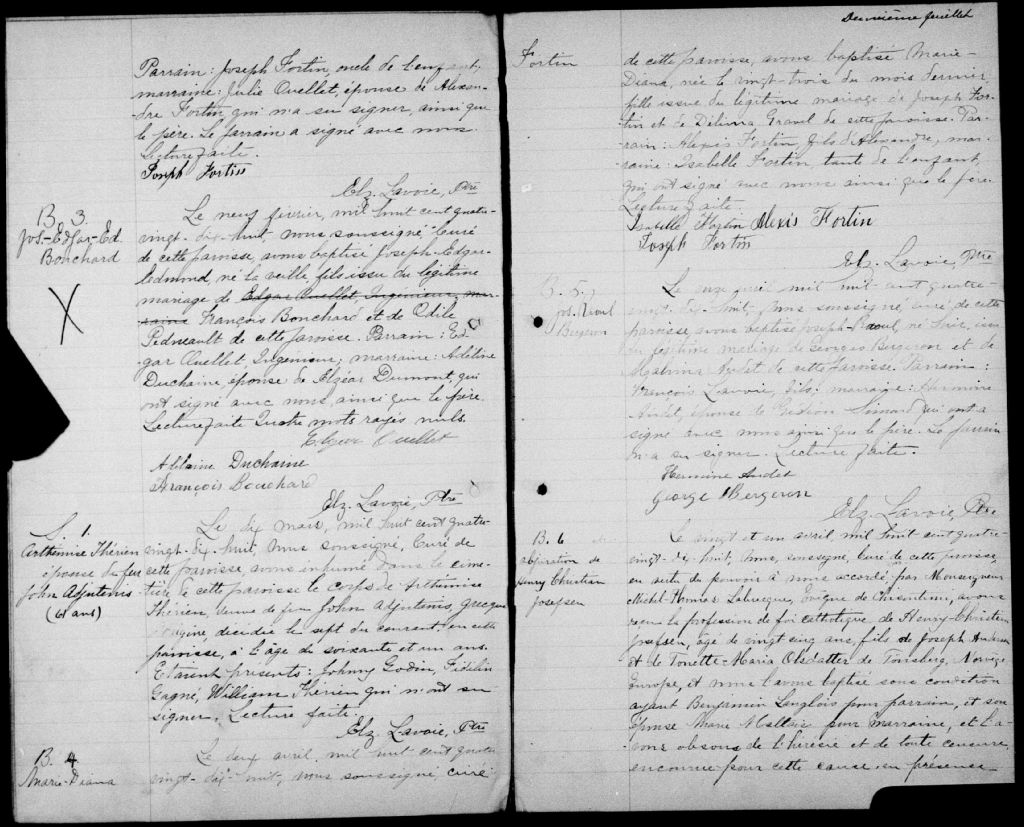 Parrain: Joseph Fortin, oncle de l'enfant;
marraine: Julie Ouellet, épouse de Alexan-
dre Fortin qui n'a su signer, ainsi que
le père. Le parrain a signé avec nous.
Lecture faite.
Joseph Fortin
Elz. Lavoie, Ptre
B. 3.
Jos-Edgar-Ed.
Bouchard
Le neuf février, mil huit cent quatre-
vingt-dix-huit, nous soussigné Curé
de cette paroisse, avons baptisé Joseph-Edgar-
Edmond, né la veille, fils issu du légitime
mariage de Edgar Ouellet, Ingénieur, mar-
raine François Bouchard et de Odile
Pedneault de cette paroisse. Parrain: Ed-
gar Ouellet, Ingénieur; marraine: Adeline
Duchaine, épouse de Elzéar Dumont, qui
ont signé avec nous, ainsi que le père.
Lecture faite Quatre mots rayés nuls.
Edgar Ouellet
Duchaine
François Bouchard
Elz. Lavoie, Ptre
S. 1.
Arthémise Thérien
épouse du feu
John Adjutenis
(61 ans)
Le dix mars, mil huit cent quatre-
vingt-dix-huit, nous soussigné, Curé de
cette paroisse, avons inhumé dans le cime-
tière de cette paroisse le corps de Arthémise
Thérien, veuve de feu John Adjutenis, Grecque
décédée le sept du courant, en cette
paroisse, à l'âge de soixante et un ans.
Etaient présents: Johnny Godin, Fidélin
Gagné, William Thérien qui n'ont su
signer. Lecture faite.
Elz. Lavoie, Ptre
B. 4
Marie-Diana
Le deux avril, mil huit cent quatre
vingt-dix-huit, nous soussigné curé
Deuxième feuillet
Fortin
de cette paroisse, avons baptisé Marie-
Diana, née le vingt-trois du mois dernier,
fille issue du légitime mariage de Joseph For-
tin et de Délima Gravel de cette paroisse. Par-
rain: Alexis Fortin, fils d'Alexandre, mar-
raine: Isabelle Fortin tante de l'enfant,
qui ont signé avec nous ainsi que le père.
Lecture faite.
Isabelle Fortin Alexis Fortin
Joseph Fortin
Elz. Lavoie, Ptre
B. 5.
Jos. Raoul
Bergeron
Le onze mil huit cent quatre-
vingt-dix-huit, nous soussigné, curé de cette
paroisse avons baptisé Joseph-Raoul, né hier, issu
du légitime mariage de Georges Bergeron et de
Malvina de cette paroisse. Parrain:
François Lavoie, fils; marraine: Hermine
Audet, épouse de Gédéon Simard qui ont a
signé avec nous ainsi que le père. Le parrain
n'a su signer. Lecture faite.
Hermine Audet
George Bergeron
Elz. Lavoie, Ptre
B. 6
abjuration de
Henry Christian
Josefsen
Le vingt et un avril mil huit cent quatre
vingt-dix-huit, nous, soussigné, curé de cette paroisse,
en vertu du pouvoir à nous accordé par Monseigneur
Michel-Thomas Labrecque, Evêque de Chicoutimi, avons
reçu la profession de foi catholique de Henry-Christian
Josefsen, âgé de vingt cinq ans, fils de Joseph
et de Tonette-Maria Olsdatter de Tönsberg, Norvège
Europe, et nous l'avons baptisé sous condition
ayant Benjamin Langlois pour parrain, et son
épouse Marie Maltais pour marraine, et l'a-
vons absous de l'hérésie et de toute censure
encourue pour cette cause en présence